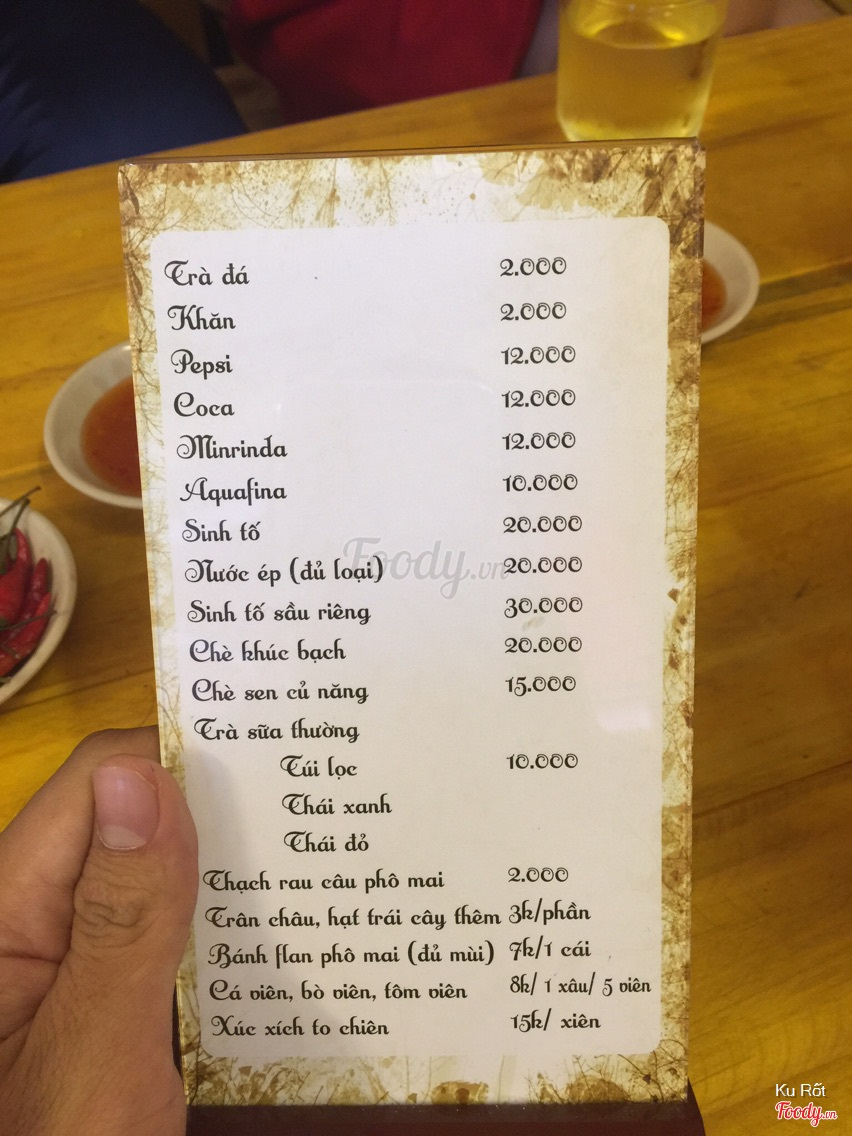 Trà đá 2.000
Khăn 2.000
Pepsi 12.000
Coca 12.000
Minrinda 12.000
Aquafina 10.000
Sinh tố 20.000
Nước ép (đủ loại) 20.000
Sinh tố sầu riêng 30.000
Chè khúc bạch 20.000
Chè sen củ năng 15.000
Trà sữa thường
Túi lọc 10.000
Thái xanh
Thái đỏ
Thạch rau câu phô mai 2.000
Trân châu, hạt trái cây thêm 3k/phần
Bánh flan phô mai (đủ mùi) 7k/1 cái
Cá viên, bò viên, tôm viên 8k/ 1 xâu/ 5 viên
Xúc xích to chiên 15k/ xiên
Foody.vn
Ku Rốt
Foody.vn